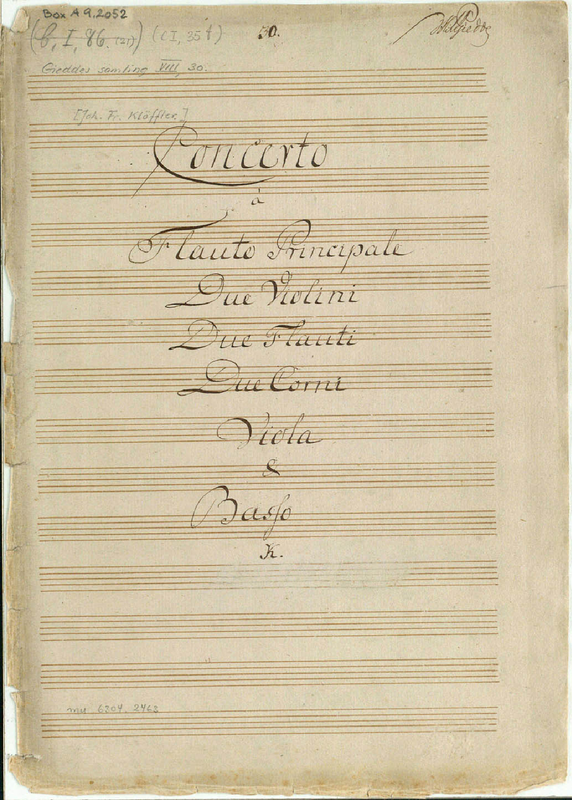 Box A 9.2052
30.
(C I, 35 t)
Gieddes samling VIII, 30.
[Joh. Fr. Klöffler]
Concerto
à
Flauto Principale
Due Violini
Due Flauti
Due Corni
Viola
&
Basso
K.
mu 6304.2463